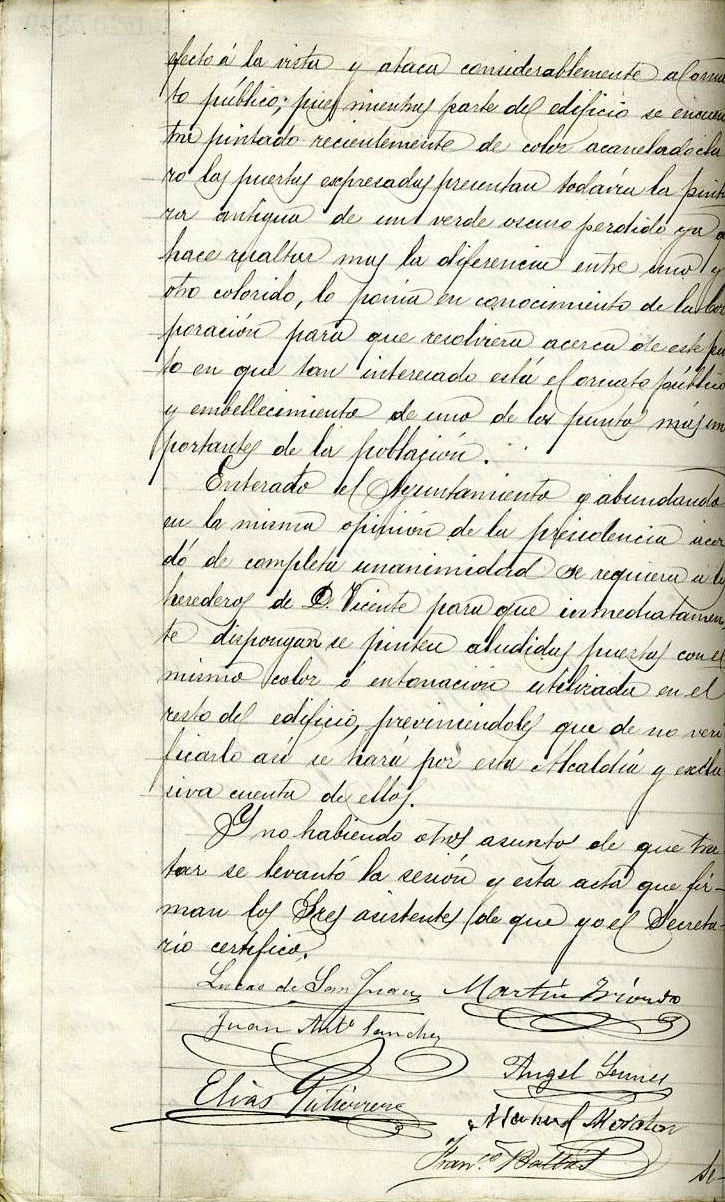 efecto á la vista y ataca considerablemente al orna
to público; pues mientras parte del edificio se encuen
tra pintado recientemente de color acanelado cla
ro las puertas expresadas presentan todavia la pintu
ra antigua de un verde oscuro perdido ya q
hace resaltar mas la diferencia entre uno y
otro colorido, lo ponia en conocimiento de la Cor
poración para que resolviera acerca de este pun
to en que tan interesado está el ornato público
y embellecimiento de uno de los punto más im
portantes de la población.
Enterado el Ayuntamiento y abundando
en la misma opinión de la presidencia acor
dó de completa unanimidad se requiera á los
herederos de D. Vicente para que inmediatamen
te dispongan se pinten aludidas puertas con el
mismo color ó entonación utilizada en el
resto del edificio, previniéndoles que de no veri
ficarlo así se hará por esta Alcaldía y exclu
siva cuenta de ellos.
Y no habiendo otros asuntos de que tra
tar se levantó la sesión y esta acta que fir-
man los Sres asistentes de que yo el Secreta-
rio certifico.
Lucas de San Juan Martín
Juan Anto Sanchez
Angel
Elías Gutiérrez
Manuel
Franco